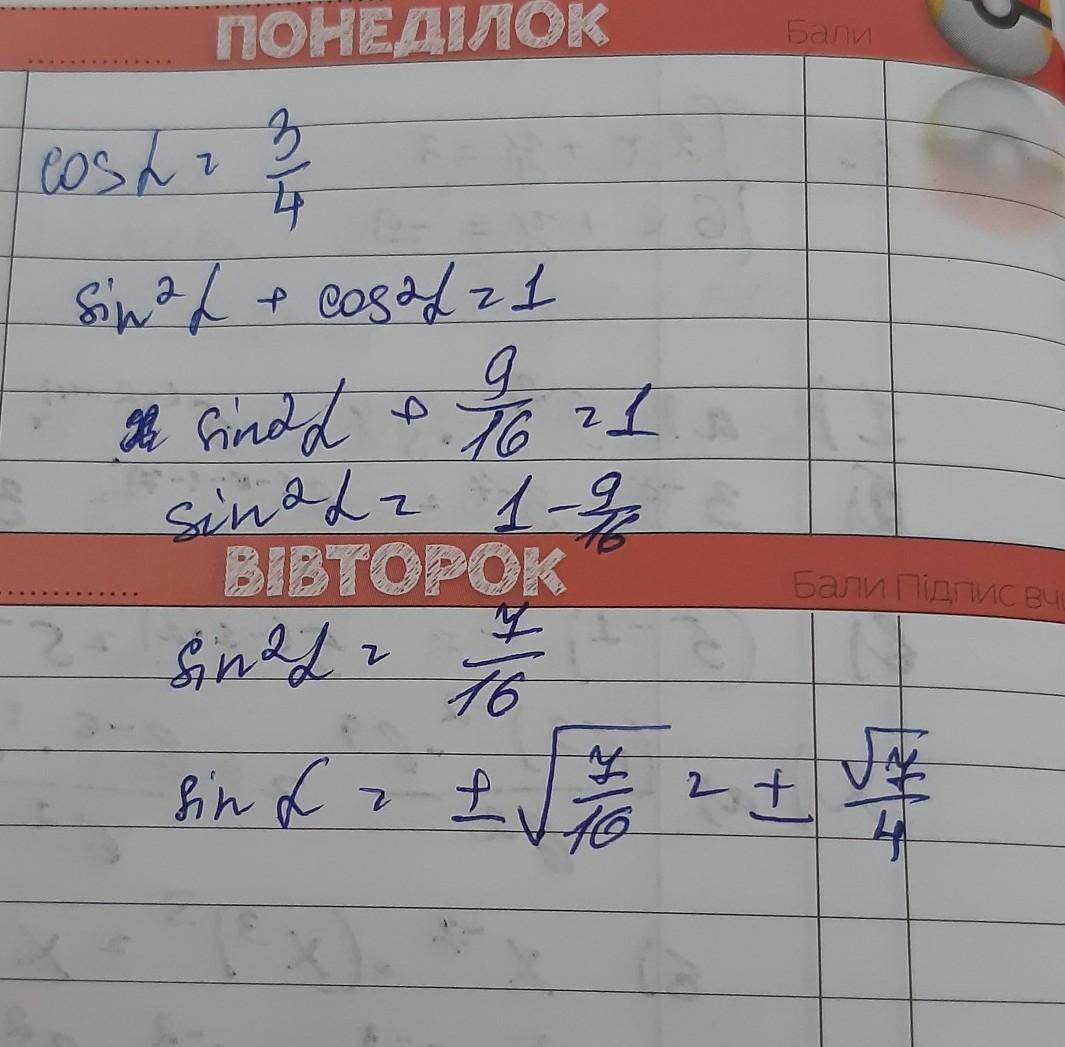 ПОНЕДІЛОК Бали
cos α = 3/4
sin²α + cos²α = 1
sin²α + 9/16 = 1
sin²α = 1 - 9/16
ВІВТОРОК Бали Підпис вч
sin²α = 7/16
sin α = ± √(7/16) = ± √7/4